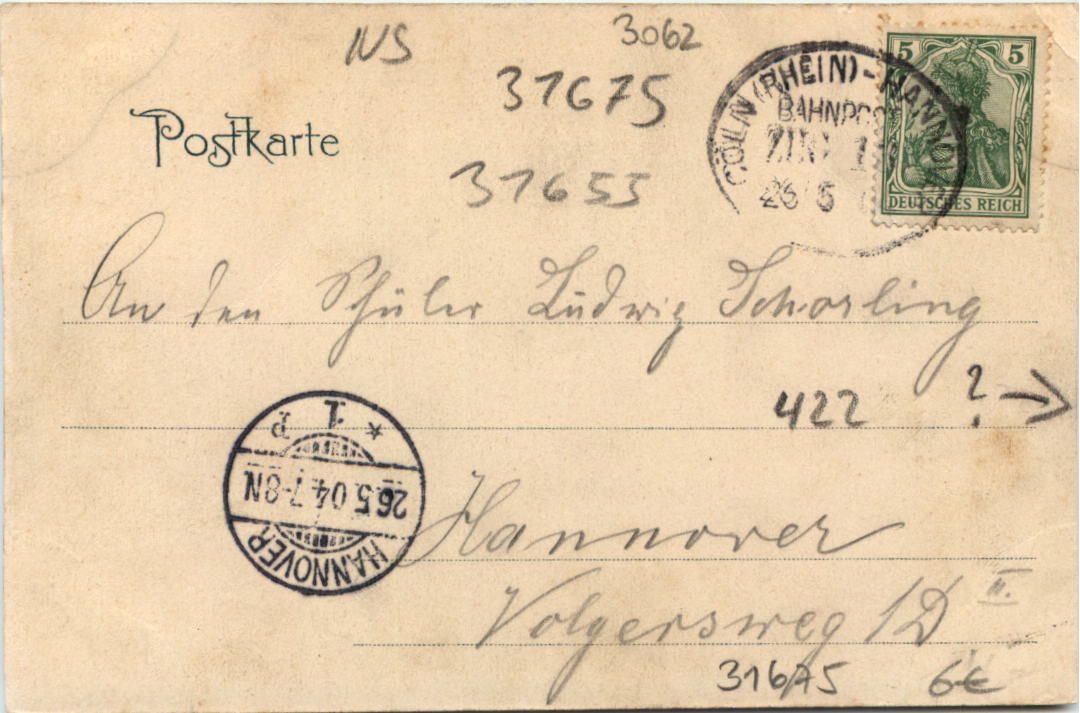 NS 3062
31675
Postkarte
31655
5 5
DEUTSCHES REICH
CÖLN (RHEIN) - HANNOVER
BAHNPOST
ZUG
26 5
An den Schüler Ludwig Schorling
422 ? →
* 1 P
26.5.04.7-8N.
HANNOVER
Hannover
Volgersweg 1D II.
31675 6€